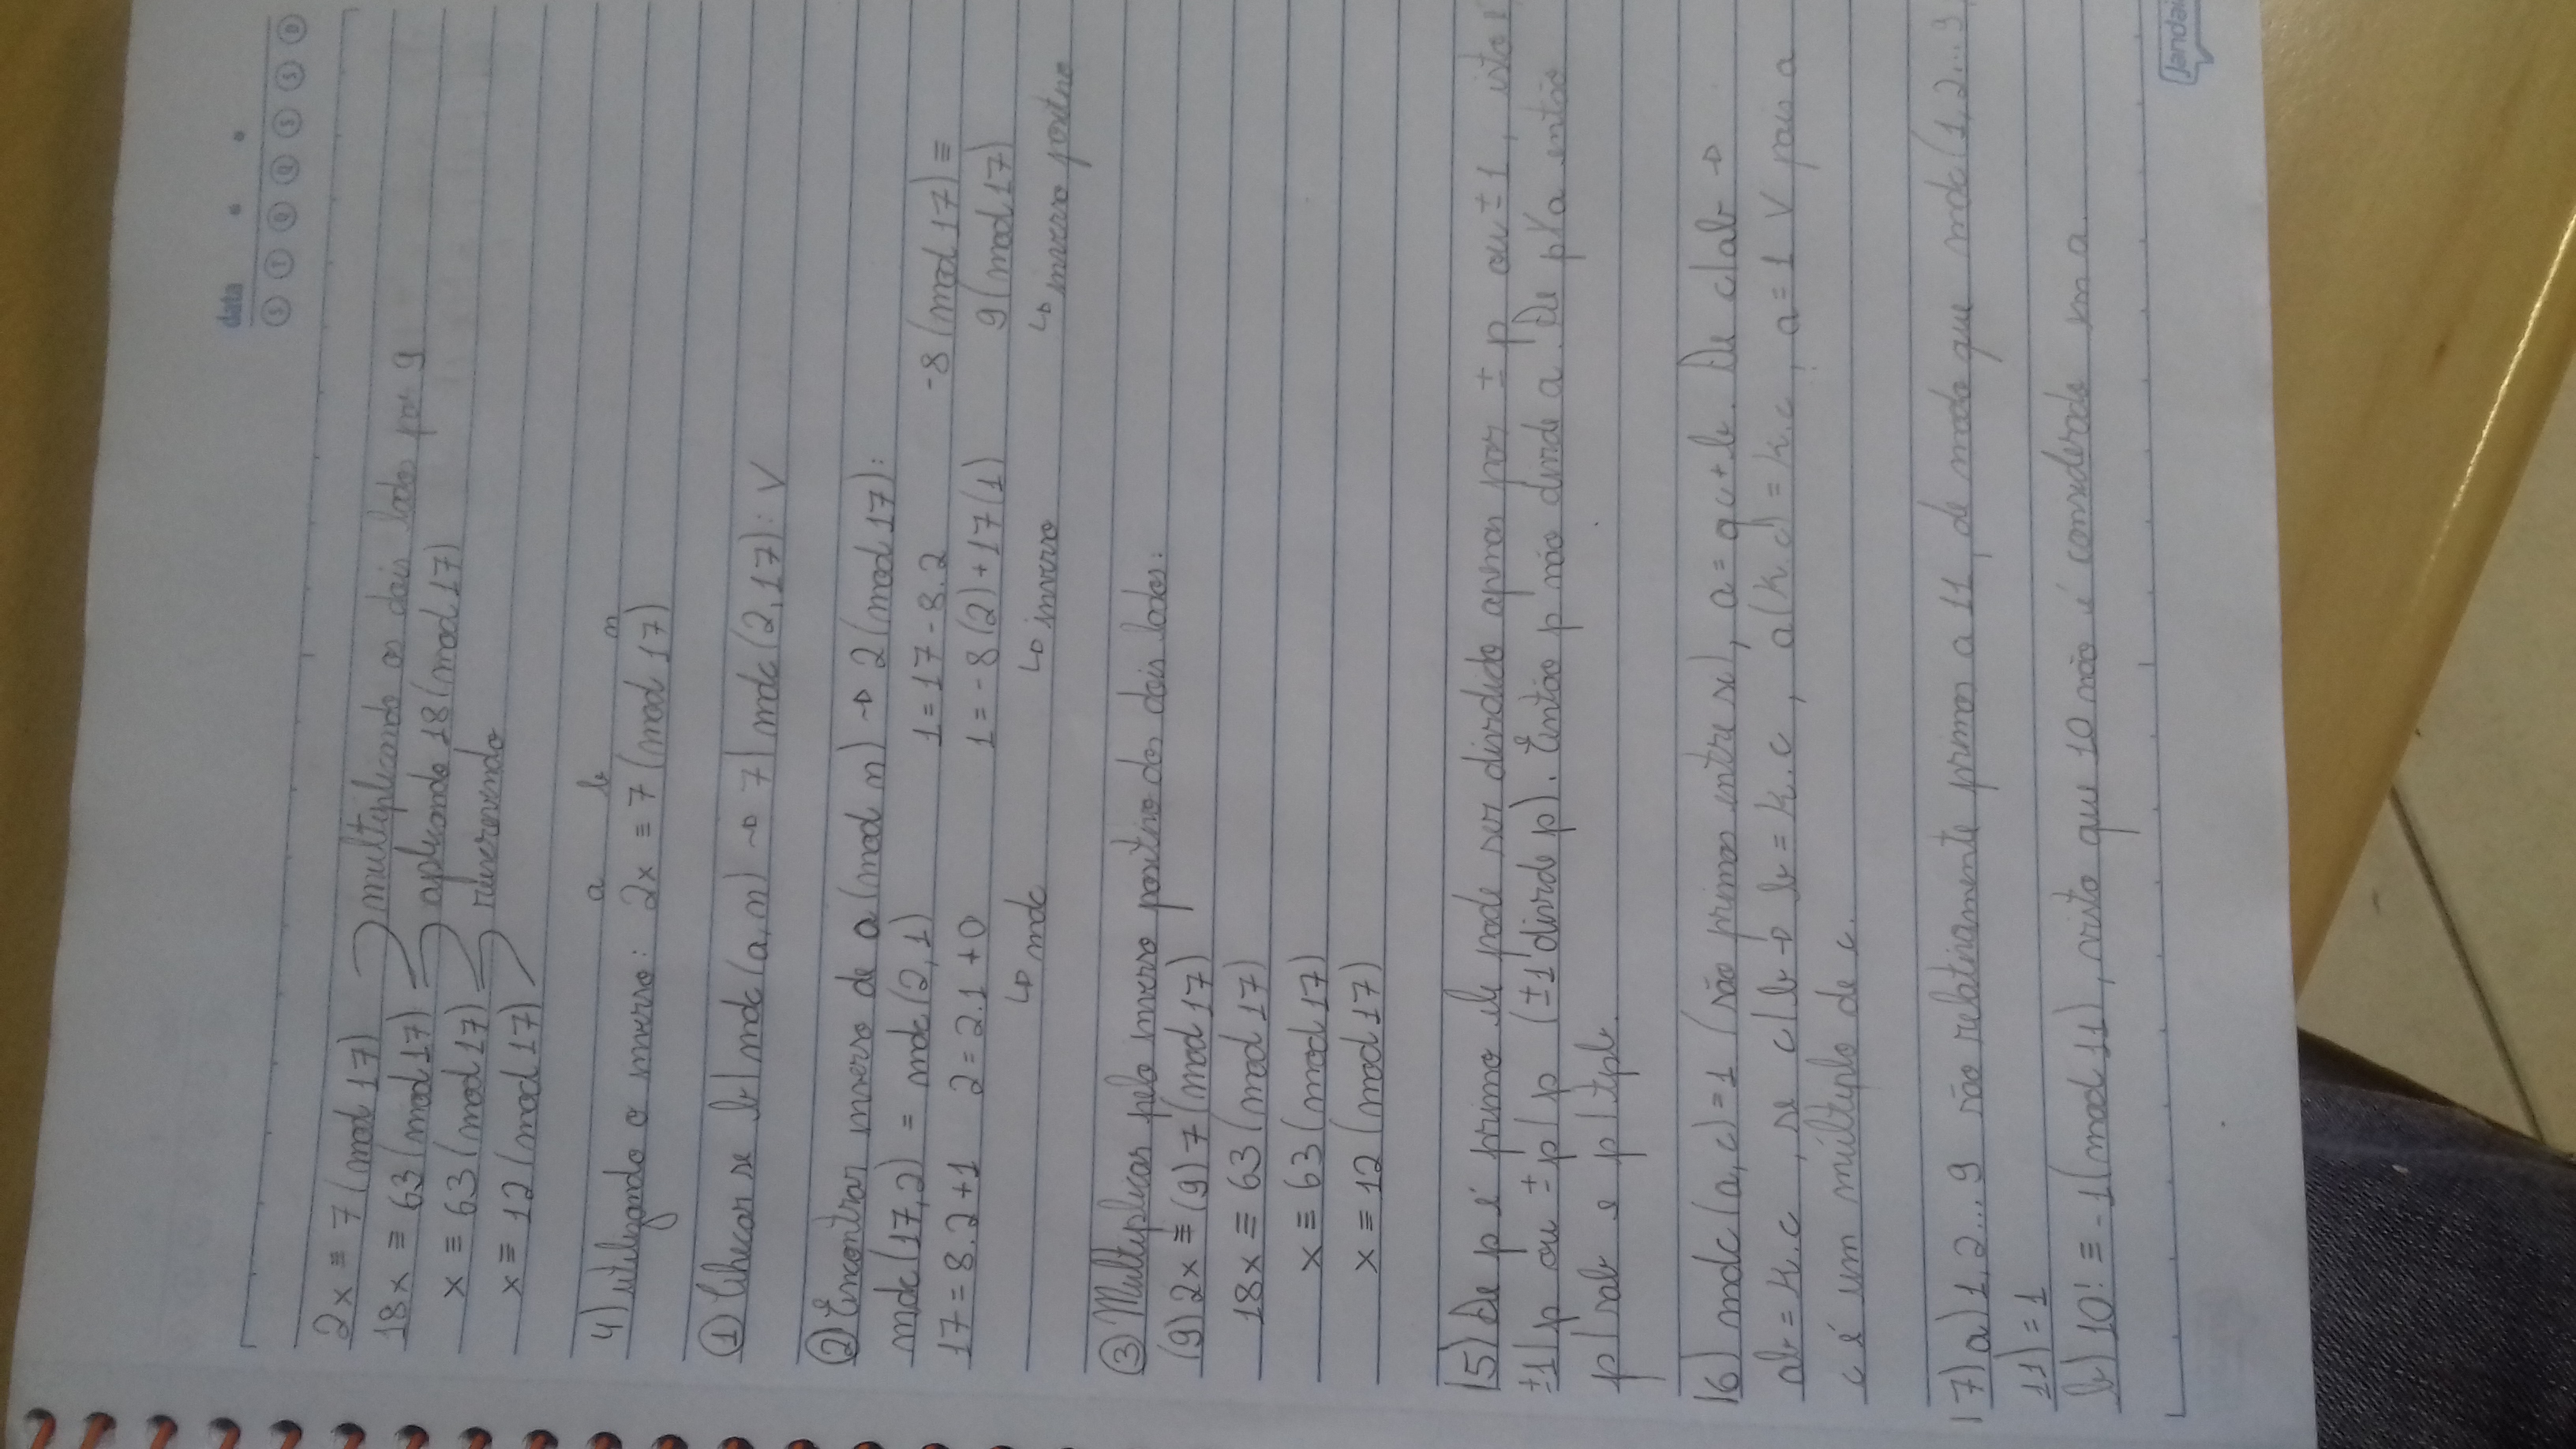 data
S T Q Q S S D
2x ≡ 7 (mod 17)
multiplicando os dois lados por 9
18x ≡ 63 (mod 17)
aplicando 18 (mod 17)
x ≡ 63 (mod 17)
reescrevendo
x ≡ 12 (mod 17)
a b n
4) utilizando o inverso: 2x ≡ 7 (mod 17)
① Checar se b | mdc (a, n) → 7 | mdc (2, 17): V
② Encontrar inverso de a (mod n) → 2 (mod 17):
mdc (17, 2) = mdc (2, 1) 1 = 17 - 8.2 -8 (mod 17) ≡
17 = 8.2 + 1 2 = 2.1 + 0 1 = -8 (2) + 17 (1) 9 (mod 17)
↳ mdc ↳ inverso ↳ inverso positivo
③ Multiplicar pelo inverso positivo dos dois lados:
(9) 2x ≡ (9) 7 (mod 17)
18x ≡ 63 (mod 17)
x ≡ 63 (mod 17)
x ≡ 12 (mod 17)
15) Se p é primo ele pode ser dividido apenas por ± p ou ± 1, isto é
±1 | p ou ± p | p (±1 divide p). Então p não divide a. Se p ∤ a então
p | sab e p | tpb.
16) mdc (a, c) = 1 (são primos entre si), a = qc + b. Se c | ab →
ab = k.c, se c | b → b = k.c, a(k.c) = k.c, a = 1 V pois a
c é um múltiplo de c.
17) a) 1, 2 ... 9 são relativamente primos a 11, de modo que mdc (1, 2 ... 9,
11) = 1
b) 10! ≡ -1 (mod 11), visto que 10 não é considerado em a.